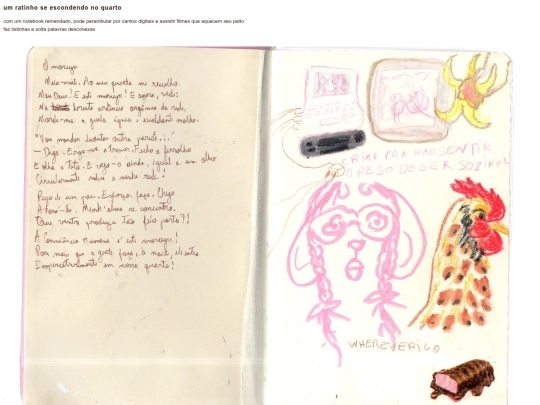 um ratinho se escondendo no quarto
com um notebook remendado, pode perambular por cantos digitais e assistir filmes que aquecem seu peito
faz listinhas e volta palavras desconexas
O morcego
Meia-noite. Ao meu quarto me recolho.
Meu Deus! E este morcego! E agora, vede:
Na bruta ardência orgânica da sede,
Morde-me a goela ígneo e escaldante molho.
"Vou mandar levantar outra parede..."
— Digo. Ergo-me a tremer. Fecho o ferrolho
E olho o teto. E vejo-o ainda, igual a um olho
Circularmente sobre a minha rede!
Pego de um pau. Esforços faço. Chego
A tocá-lo. Minh'alma se concentra.
Que ventre produziu tão feio parto?!
A Consciência Humana é este morcego!
Por mais que a gente faça, à noite, ele entra
Imperceptivelmente em nosso quarto!
CRIAR PRA NÃO SENTIR
O PESO DE SER SOZINHA
WHEREVER I GO